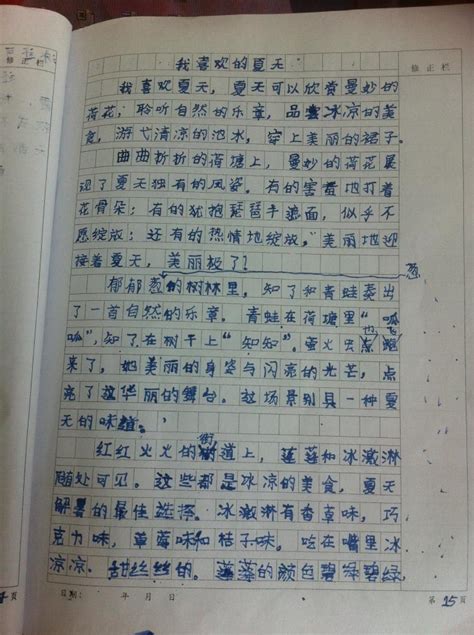 修正栏
我喜欢的夏天
我喜欢夏天，夏天可以欣赏曼妙的
荷花；聆听自然的乐章，品尝冰凉的美
食，游弋清凉的池水，穿上美丽的裙子。
曲曲折折的荷塘上，曼妙的荷花展
现了夏天独有的风姿。有的害羞地打着
花骨朵；有的犹抱琵琶半遮面，似乎不
愿绽放；还有的热情地绽放，美丽地迎
接着夏天，美丽极了！
葱
郁郁葱的树林里，知了和青蛙奏出
了一首自然的乐章。青蛙在荷塘里“呱
呱”，知了在树干上“知知”。萤火虫也跑
来了，她美丽的身姿与闪亮的光芒，点
亮了这华丽的舞台。这场景别具一种夏
天的味道。
红红火火的街道上，莲蓬和冰激淋
随处可见。这些都是冰凉的美食，夏天
解暑的最佳选择。冰激淋有香草味，巧
克力味，草莓味和桔子味。吃在嘴里冰
凉凉，甜丝丝的。莲蓬的颜色碧绿碧绿，
日期： 年 月 日
第 15 页